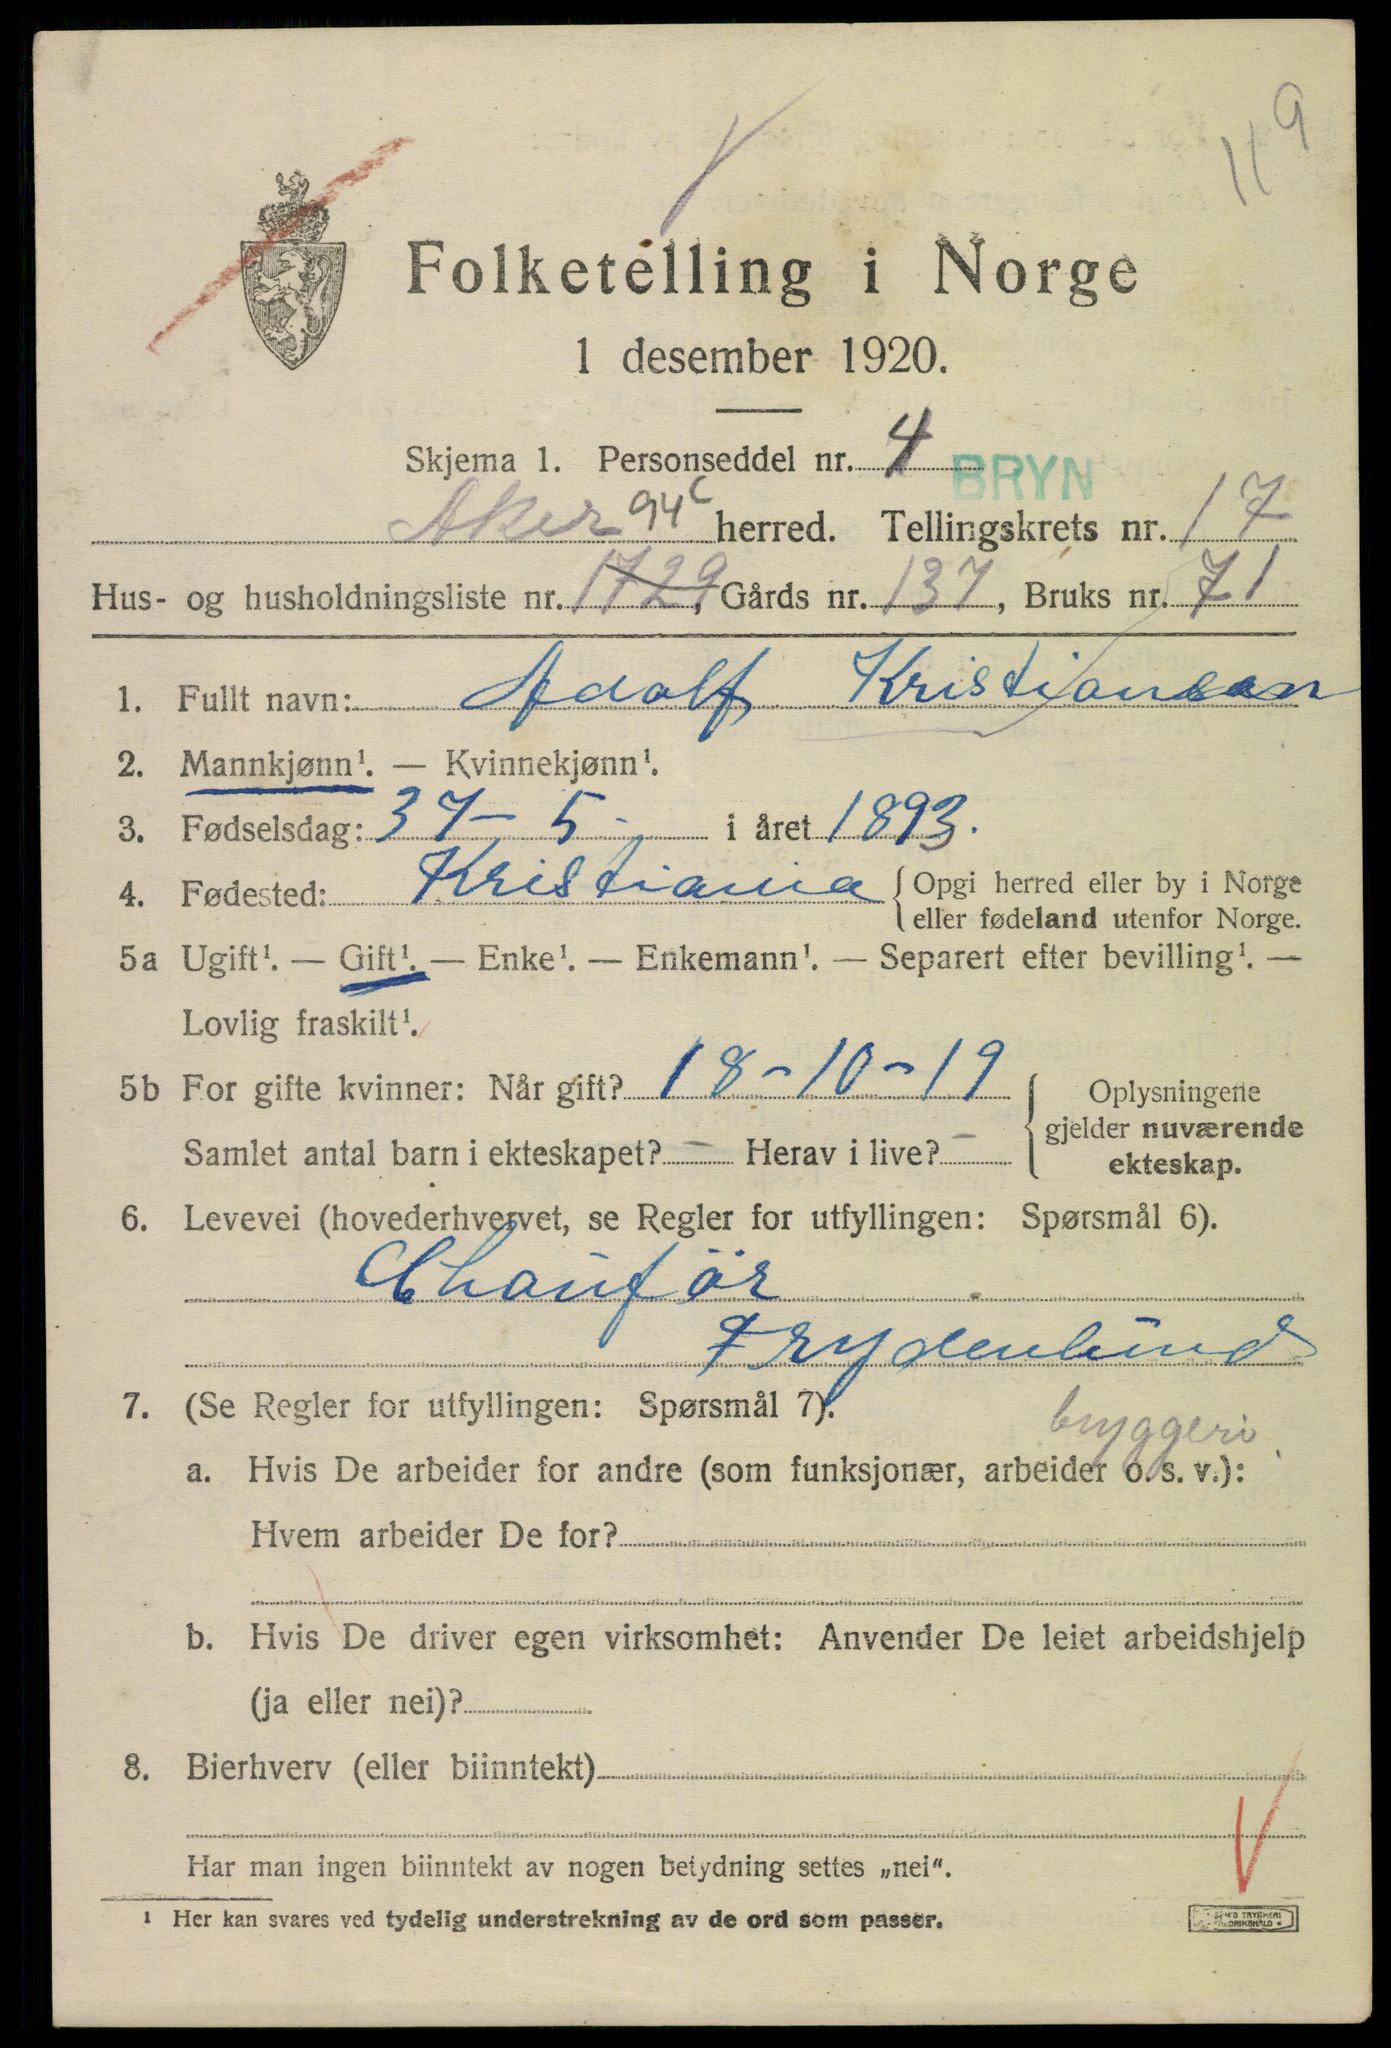 119
Folketelling i Norge
1 desember 1920.
Skjema 1. Personseddel nr. 4
BRYN
Aker 94c herred. Tellingskrets nr. 17
Hus- og husholdningsliste nr. 1729, Gårds nr. 137, Bruks nr. 71
1. Fullt navn: Adolf Kristiansen
2. Mannkjønn¹. — Kvinnekjønn¹.
3. Fødselsdag: 37-5- i året 1893.
4. Fødested: Kristiania { Opgi herred eller by i Norge
eller fødeland utenfor Norge.
5a Ugift¹. — Gift¹. — Enke¹. — Enkemann¹. — Separert efter bevilling¹. —
Lovlig fraskilt¹.
5b For gifte kvinner: Når gift? 18-10-19
Samlet antal barn i ekteskapet? — Herav i live? —
{ Oplysningene
gjelder nuværende
ekteskap.
6. Levevei (hovederhvervet, se Regler for utfyllingen: Spørsmål 6).
Chauffør
Frydenlund
bryggeri
7. (Se Regler for utfyllingen: Spørsmål 7).
a. Hvis De arbeider for andre (som funksjonær, arbeider o. s. v.):
Hvem arbeider De for?
b. Hvis De driver egen virksomhet: Anvender De leiet arbeidshjelp
(ja eller nei)?
8. Bierhverv (eller biinntekt)
Har man ingen biinntekt av nogen betydning settes „nei“.
¹ Her kan svares ved tydelig understrekning av de ord som passer.